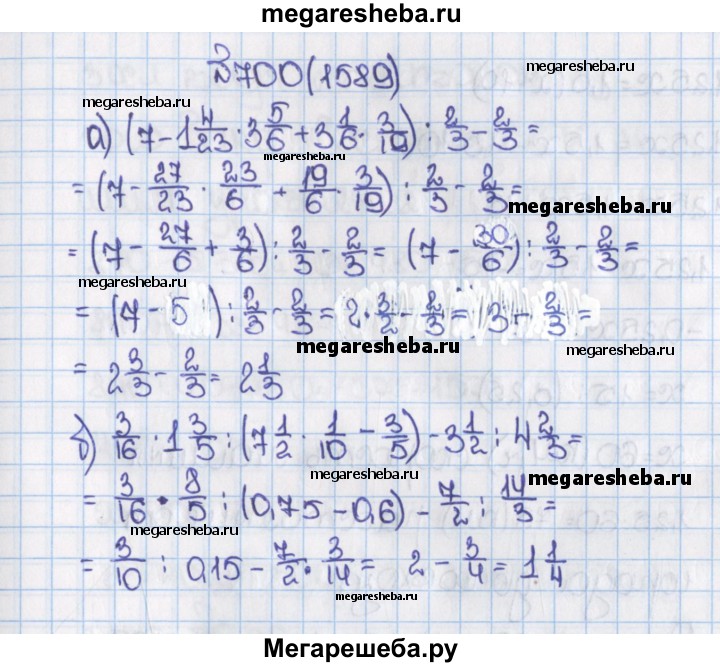 megaresheba.ru
megaresheba.ru
№700(1589)
megaresheba.ru
а) (7 - 1 4/23 · 3 5/6 + 3 1/6 · 3/19) : 2/3 - 2/3 =
megaresheba.ru
= (7 - 27/23 · 23/6 + 19/6 · 3/19) : 2/3 - 2/3 =
megaresheba.ru
= (7 - 27/6 + 3/6) : 2/3 - 2/3 = (7 - 30/6) : 2/3 - 2/3 =
megaresheba.ru
= (7 - 5) : 2/3 - 2/3 = 2 · 3/2 - 2/3 = 3 - 2/3 =
megaresheba.ru
megaresheba.ru
= 2 3/3 - 2/3 = 2 1/3
megaresheba.ru
б) 3/16 · 1 3/5 : (7 1/2 · 1/10 - 3/5) - 3 1/2 : 4 2/3 =
megaresheba.ru
megaresheba.ru
= 3/16 · 8/5 : (0,75 - 0,6) - 7/2 : 14/3 =
megaresheba.ru
= 3/10 : 0,15 - 7/2 · 3/14 = 2 - 3/4 = 1 1/4
megaresheba.ru
Мегарешеба.ру